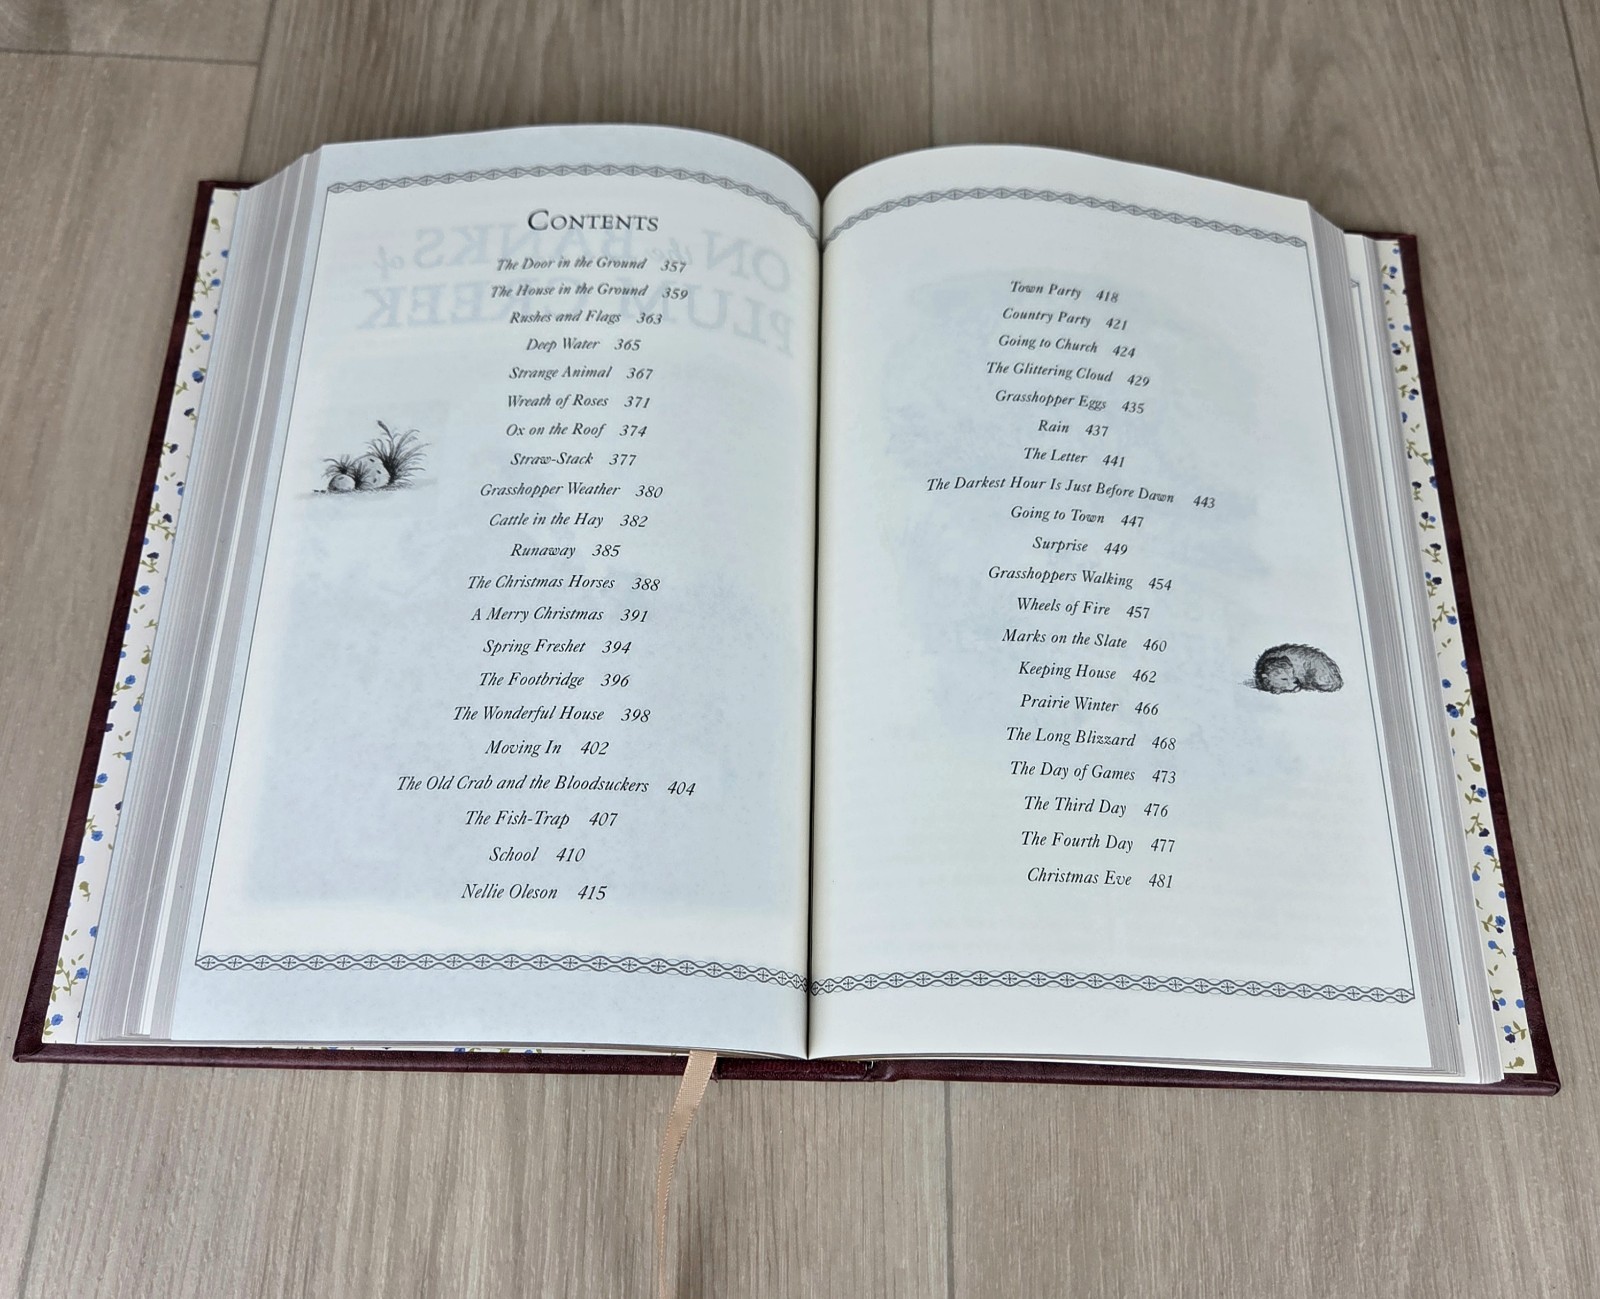 CONTENTS
The Door in the Ground 357
The House in the Ground 359
Rushes and Flags 363
Deep Water 365
Strange Animal 367
Wreath of Roses 371
Ox on the Roof 374
Straw-Stack 377
Grasshopper Weather 380
Cattle in the Hay 382
Runaway 385
The Christmas Horses 388
A Merry Christmas 391
Spring Freshet 394
The Footbridge 396
The Wonderful House 398
Moving In 402
The Old Crab and the Bloodsuckers 404
The Fish-Trap 407
School 410
Nellie Oleson 415
Town Party 418
Country Party 421
Going to Church 424
The Glittering Cloud 429
Grasshopper Eggs 435
Rain 437
The Letter 441
The Darkest Hour Is Just Before Dawn 443
Going to Town 447
Surprise 449
Grasshoppers Walking 454
Wheels of Fire 457
Marks on the Slate 460
Keeping House 462
Prairie Winter 466
The Long Blizzard 468
The Day of Games 473
The Third Day 476
The Fourth Day 477
Christmas Eve 481